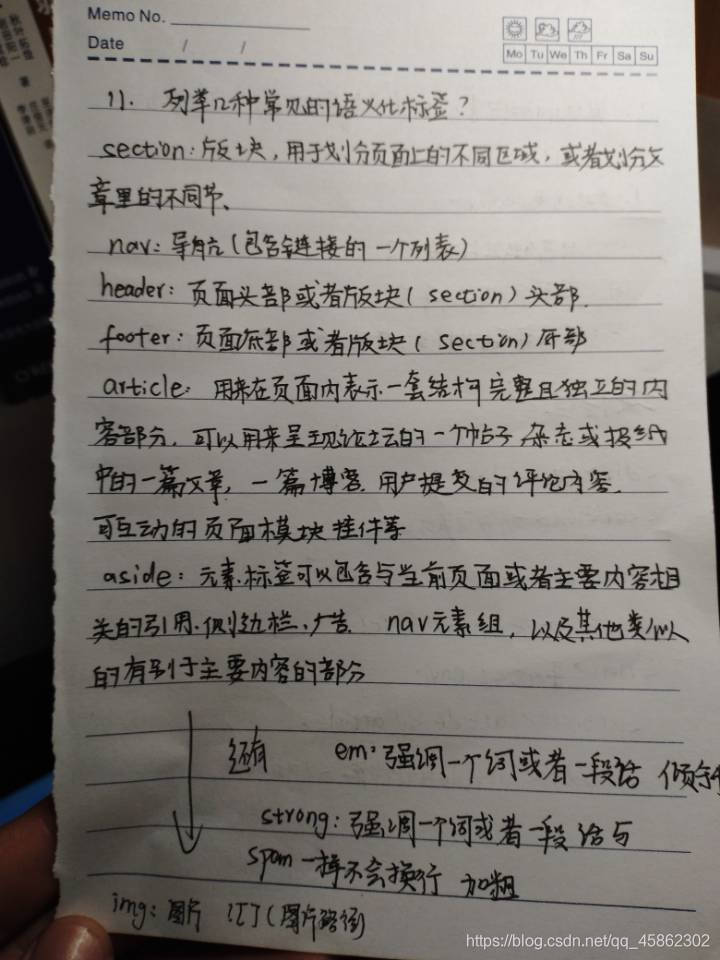 Memo No.
Date / /
Mo Tu We Th Fr Sa Su
11. 列举几种常见的语义化标签?
section: 版块,用于划分页面上的不同区域,或者划分文
章里的不同节.
nav: 导航(包含链接的一个列表)
header: 页面头部或者版块(section)头部.
footer: 页面底部或者版块(section)底部
article: 用来在页面内表示一套结构完整且独立的内
容部分,可以用来呈现论坛的一个帖子,杂志或报纸
中的一篇文章,一篇博客.用户提交的评论内容.
可互动的页面模块挂件等
aside: 元素.标签可以包含与当前页面或者主要内容相
关的引用.侧边栏、广告. nav元素组,以及其他类似
的有别于主要内容的部分
还有 em: 强调一个词或者一段话 倾斜
strong: 强调一个词或者一段话与
span一样不会换行 加粗
img: 图片 (图片路径)
https://blog.csdn.net/qq_45862302